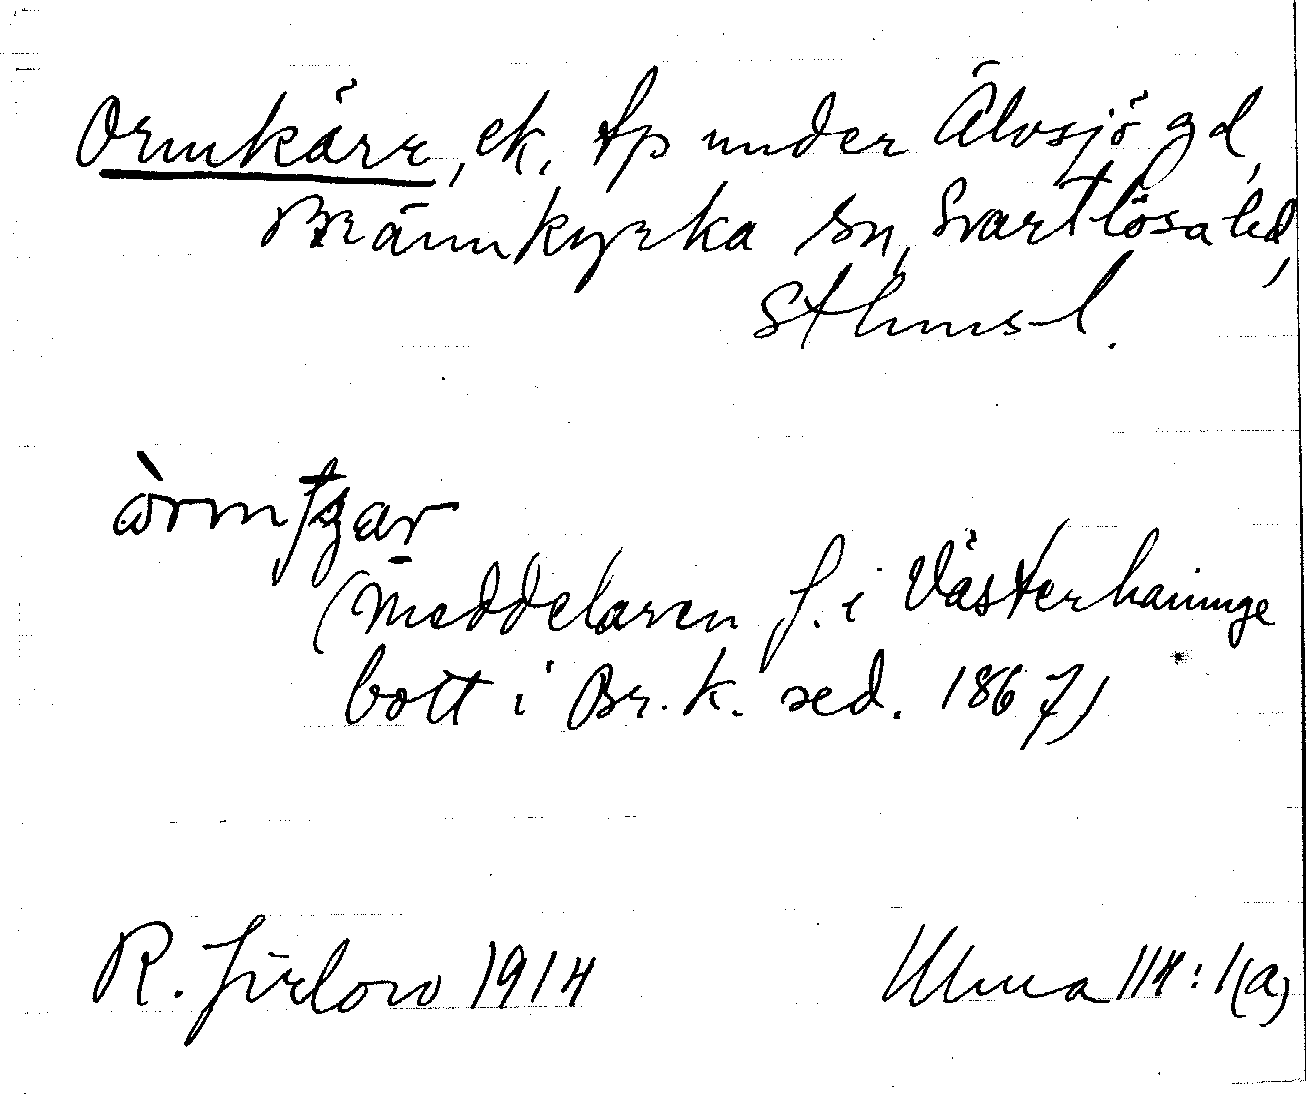 Ormkärr, ek. tp under Älvsjö gd,
Brännkyrka sn, Svartlösa hd,
Sthmsl.
(meddelaren f. i Västerhaninge
bott i Br.k. sed. 1867)
R. Jirlow 1914 Ulma 114:1(a)